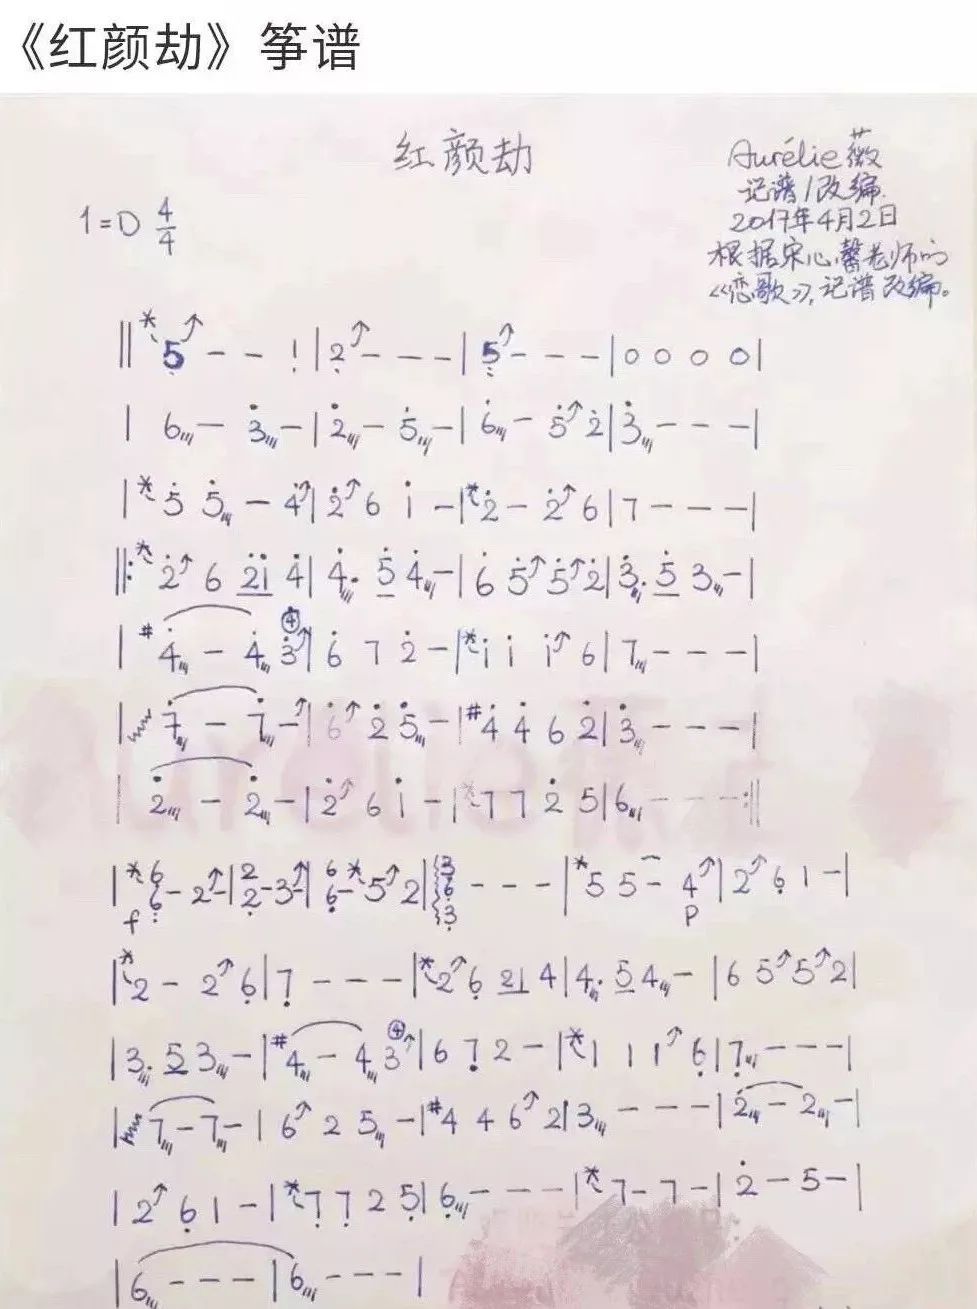 《红颜劫》筝谱
红颜劫
Aurélie薇
记谱/改编.
2017年4月2日
根据宋心馨老师的
《恋歌》,记谱改编。
1=D 4/4
‖ * 5↗ - - ! | 2↗ - - - | 5↗ - - - | 0 0 0 0 |
| 6 - 3 - | 2 - 5 - | 6 - 5↗ 2 | 3 - - - |
| * 5 5 - 4↗ | 2↗ 6 i - | * 2 - 2↗ 6 | 7 - - - |
‖: * 2↗ 6 2i 4 | 4. 5 4 - | 6 5↗ 5↗ 2 | 3. 5 3 - |
| #4 - 4 ④3↗ | 6 7 2 - | * i i i↗ 6 | 7 - - - |
| 7 - 7 -↗ | 6↗ 2 5 - | #4 4 6 2 | 3 - - - |
| 2 - 2 - | 2↗ 6 i - | * 7 7 2 5 | 6 - - - :‖
| * 6 6 - 2↗ - | 2 2 - 3↗ - | 6 6 - * 5↗ 2 | 3 6 3 - - - | * 5 5 - 4↗ | 2↗ 6 1 - |
f p
| * 2 - 2↗ 6 | 7 - - - | * 2↗ 6 21 4 | 4. 5 4 - | 6 5↗ 5↗ 2 |
| 3. 5 3 - | #4 - 4 ④3↗ | 6 7 2 - | * 1 1 1↗ 6 | 7 - - - |
| 7 - 7 - | 6↗ 2 5 - | #4 4 6↗ 2 | 3 - - - | 2 - 2 - |
| 2↗ 6 1 - | * 7 7 2 5 | 6 - - - | * 7 - 7 - | 2 - 5 - |
| 6 - - - | 6 - - - |